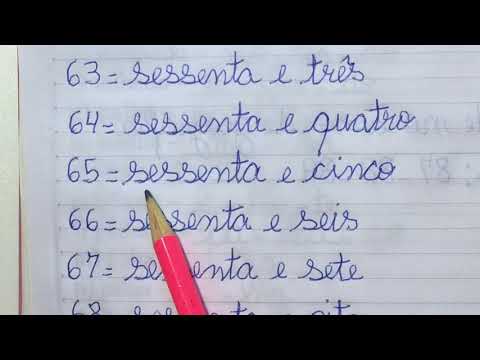 63 = sessenta e três
64 = sessenta e quatro
65 = sessenta e cinco
66 = sessenta e seis
67 = sessenta e sete
68